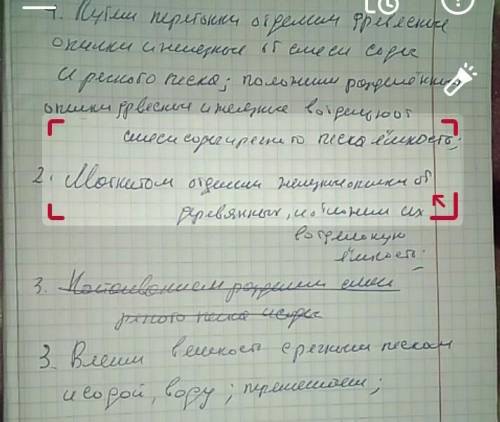 1. Путём перегонки отделим древесные
опилки и железные от смеси соды
и речного песка; положим разделённые
опилки древесные и железные в отдельную от
смеси соды и речного песка ёмкость;
2. Магнитом отделим железные опилки от
деревянных, и отложим их
в отдельную
ёмкость.
3. Настаиванием разделим смеси
речного песка и соды
3. Влеим в ёмкость с речным песком
и содой, воду; перемешаем;